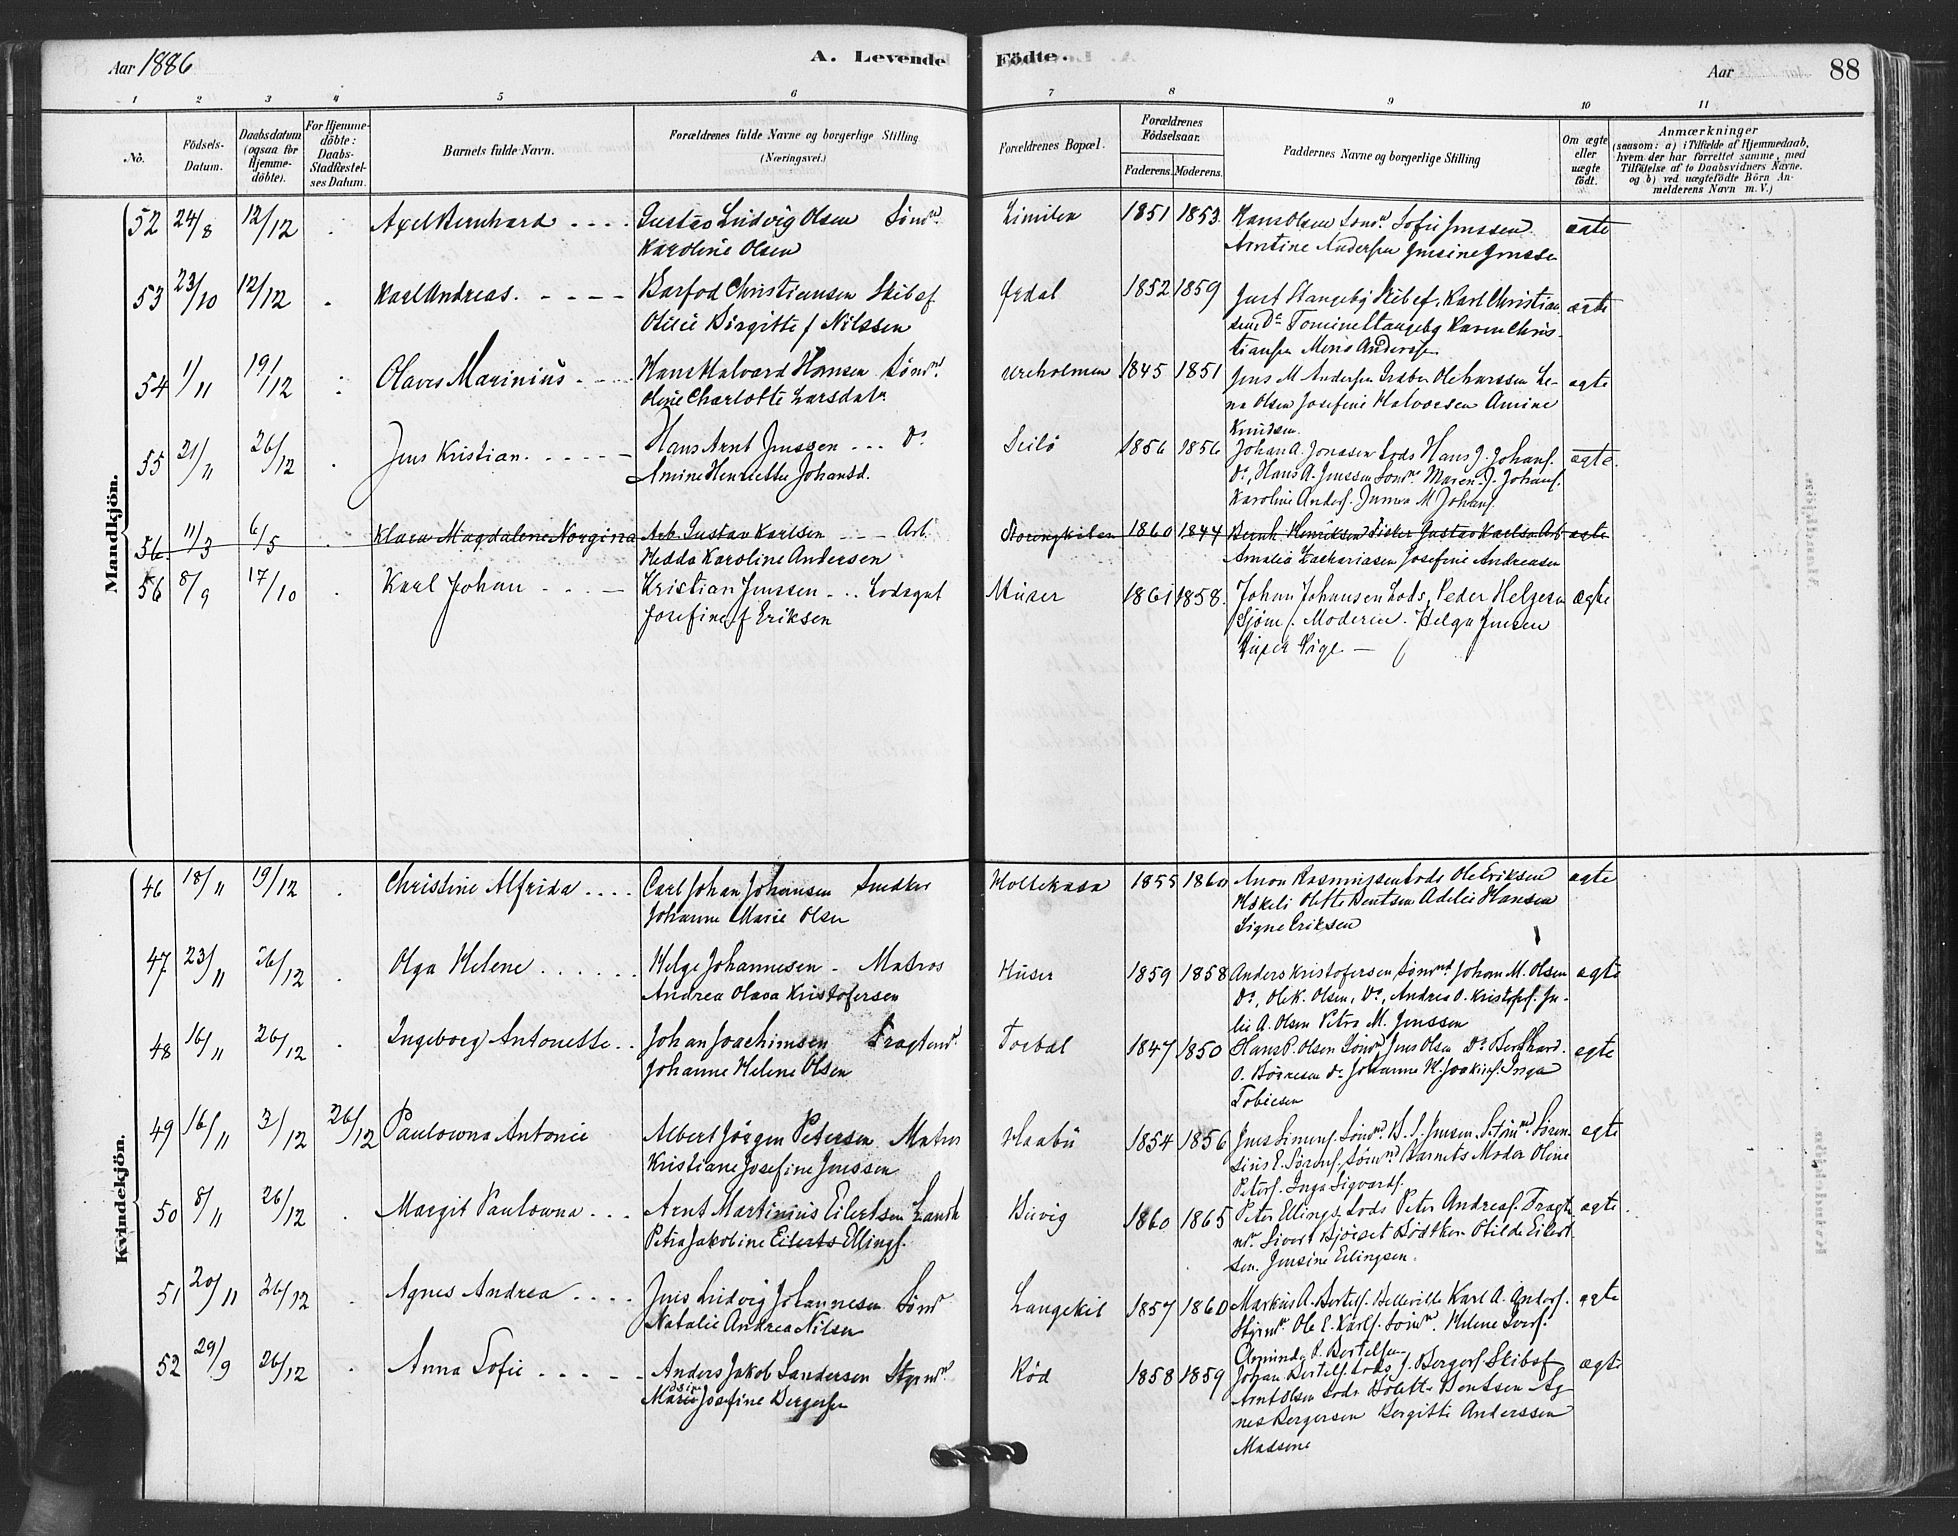 Aar 1886
A. Levende
Födte.
Aar
88
1 2 3 4 5 6 7 8 9 10 11
No.
Födsels-Datum.
Daabsdatum (ogsaa for Hjemme-döbte).
For Hjemme-döbte: Daabs-Stadfæstel-ses Datum.
Barnets fulde Navn.
Forældrenes fulde Navne og borgerlige Stilling
(Næringsvei.)
Forældrenes Bopæl.
Forældrenes Födselsaar.
Faderens. Moderens.
Faddernes Navne og borgerlige Stilling
Om ægte eller uægte födt.
Anmærkninger
(saasom: a) i Tilfælde af Hjemmedaab, hvem der har forrettet samme, med Tilföielse af to Daabsvidners Navne. og b) ved uægtefödte Börn An-melderens Navn m. V.)
Mandkjön.
52 24/8 12/12 Axel Bernhard Gustav Ludvig Olsen Sömd. 1851 1853 Hans Olsen Sömd. Sofie Jenssen ægte
Karoline Olsen
53 23/10 12/12 Karl Andreas. Barfod Christiansen Skibsf 1852 1859 Just Stangeby Skibsf. Karl Christian- ægte
Otilie Birgitte f Nilssen
sen Do Tomine Stangeby Karen Chris-
tiansen Andersen
54 1/11 19/12 Olaves Marinius Hans Halvard Hansen Sömd. 1845 1851 Jens M Andersen Ole Le- ægte
Oline Charlotte Larsdatr
na Olsen Josefine Halvorsen Amine
Knudsen.
55 21/11 26/12 Jens Kristian. Hans Arnt Jenssen Do 1856 1856 Johan A. Jonassen Lods Hans J. Johans. ægte.
Amine Henriette Johansd.
Do, Hans A. Jenssen Sömd. Maren J. Johans.
Karoline Anders. M Johans.
56 11/3 6/5 Klara Magdalene Norgina Arb. Gustav Karlsen Arb. 1860 1844 Bernh Henriksen Gustav Karlsen Arb ægte
Hedda Karoline Andersen
Amalia Zachariasen Josefine Andreasen
56 8/9 17/10 Karl Johan Kristian Jenssen Lodsgut Huser 1861 1858. Johan Johansen Lods, Peder Helgesen ægte
Josefine f Eriksen
Sjöm. Moderen. Helga Jensen
Huser Pige
Kvindekjön.
46 18/11 19/12 Christine Alfrida Carl Johan Johansen Snedker Holtekasa 1855 1860 Aron Rasmussen Lods Ole Eriksen ægte
Johanne Marie Olsen
Olette Bentsen Adelie Hansen
Signe Eriksen
47. 23/11 26/12 Olga Helene Helge Johannesen Matros Huser 1859 1858 Anders Kristofersen Sömd Johan M. Olsen ægte
Andrea Olava Kristofersen
Do, Ole K. Olsen, Do, Andrea O. Kristofs. Ju-
lie A. Olsen Petra M. Jenssen
48 16/11 26/12 Ingeborg Antonette Johan Joachimsen Fragtemd. 1847 1850 Hans P. Olsen Sömd Jens Olsen Do Bernhard. ægte
Johanne Helene Olsen
O. Börresen Do Johanne H. Joakims. Inga
Tobiesen
49 16/11 3/12 26/12 Paulowna Antonie Albert Jörgen Petersen Matros 1854 1856 Jens Simens. Sömd. B. S. Jensen Sömd. Sören- ægte
Kristiane Josefine Jenssen
sius E. Sörens. Sömd Barnets Moder Oline
Peters. Inga Sigvards.
50 8/11 26/12 Margit Paulowna Arnt Martinius Eilertsen Buvig 1860 1865 Peter Ellings. Lods Peter Andreas. Fragte- ægte
Petra Jakobine Eilerts Ellings.
md. Sivert Bjöiset Bödtker Otilde Eilert-
sen. Jensine Ellingsen.
51 20/11 26/12 Agnes Andrea Jens Ludvig Johannesen Sömd Langekil 1857 1860 Markus A. Bertels. Belleville Karl A. Anders. ægte
Natalie Andrea Nilsen
Styrmd. Ole E. Karls. Sömd. Helene Ivers.
Bertelsen
52 29/9 26/12 Anna Sofie Anders Jakob Sandersen Styrmd. Röd 1858 1859 Johan Bertels. Lods J. Bergers. Skibsf ægte
Josefine Bergersen
Arnt Olsen Lods Bolette Bentsen Ag-
nes Bergersen Bergitte Anderssen
Madsene